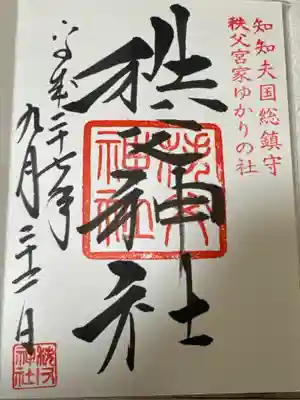 知知夫国総鎮守
秩父宮家ゆかりの社
秩父神社
秩父
神社
平成二十七年
九月
秩父
神社